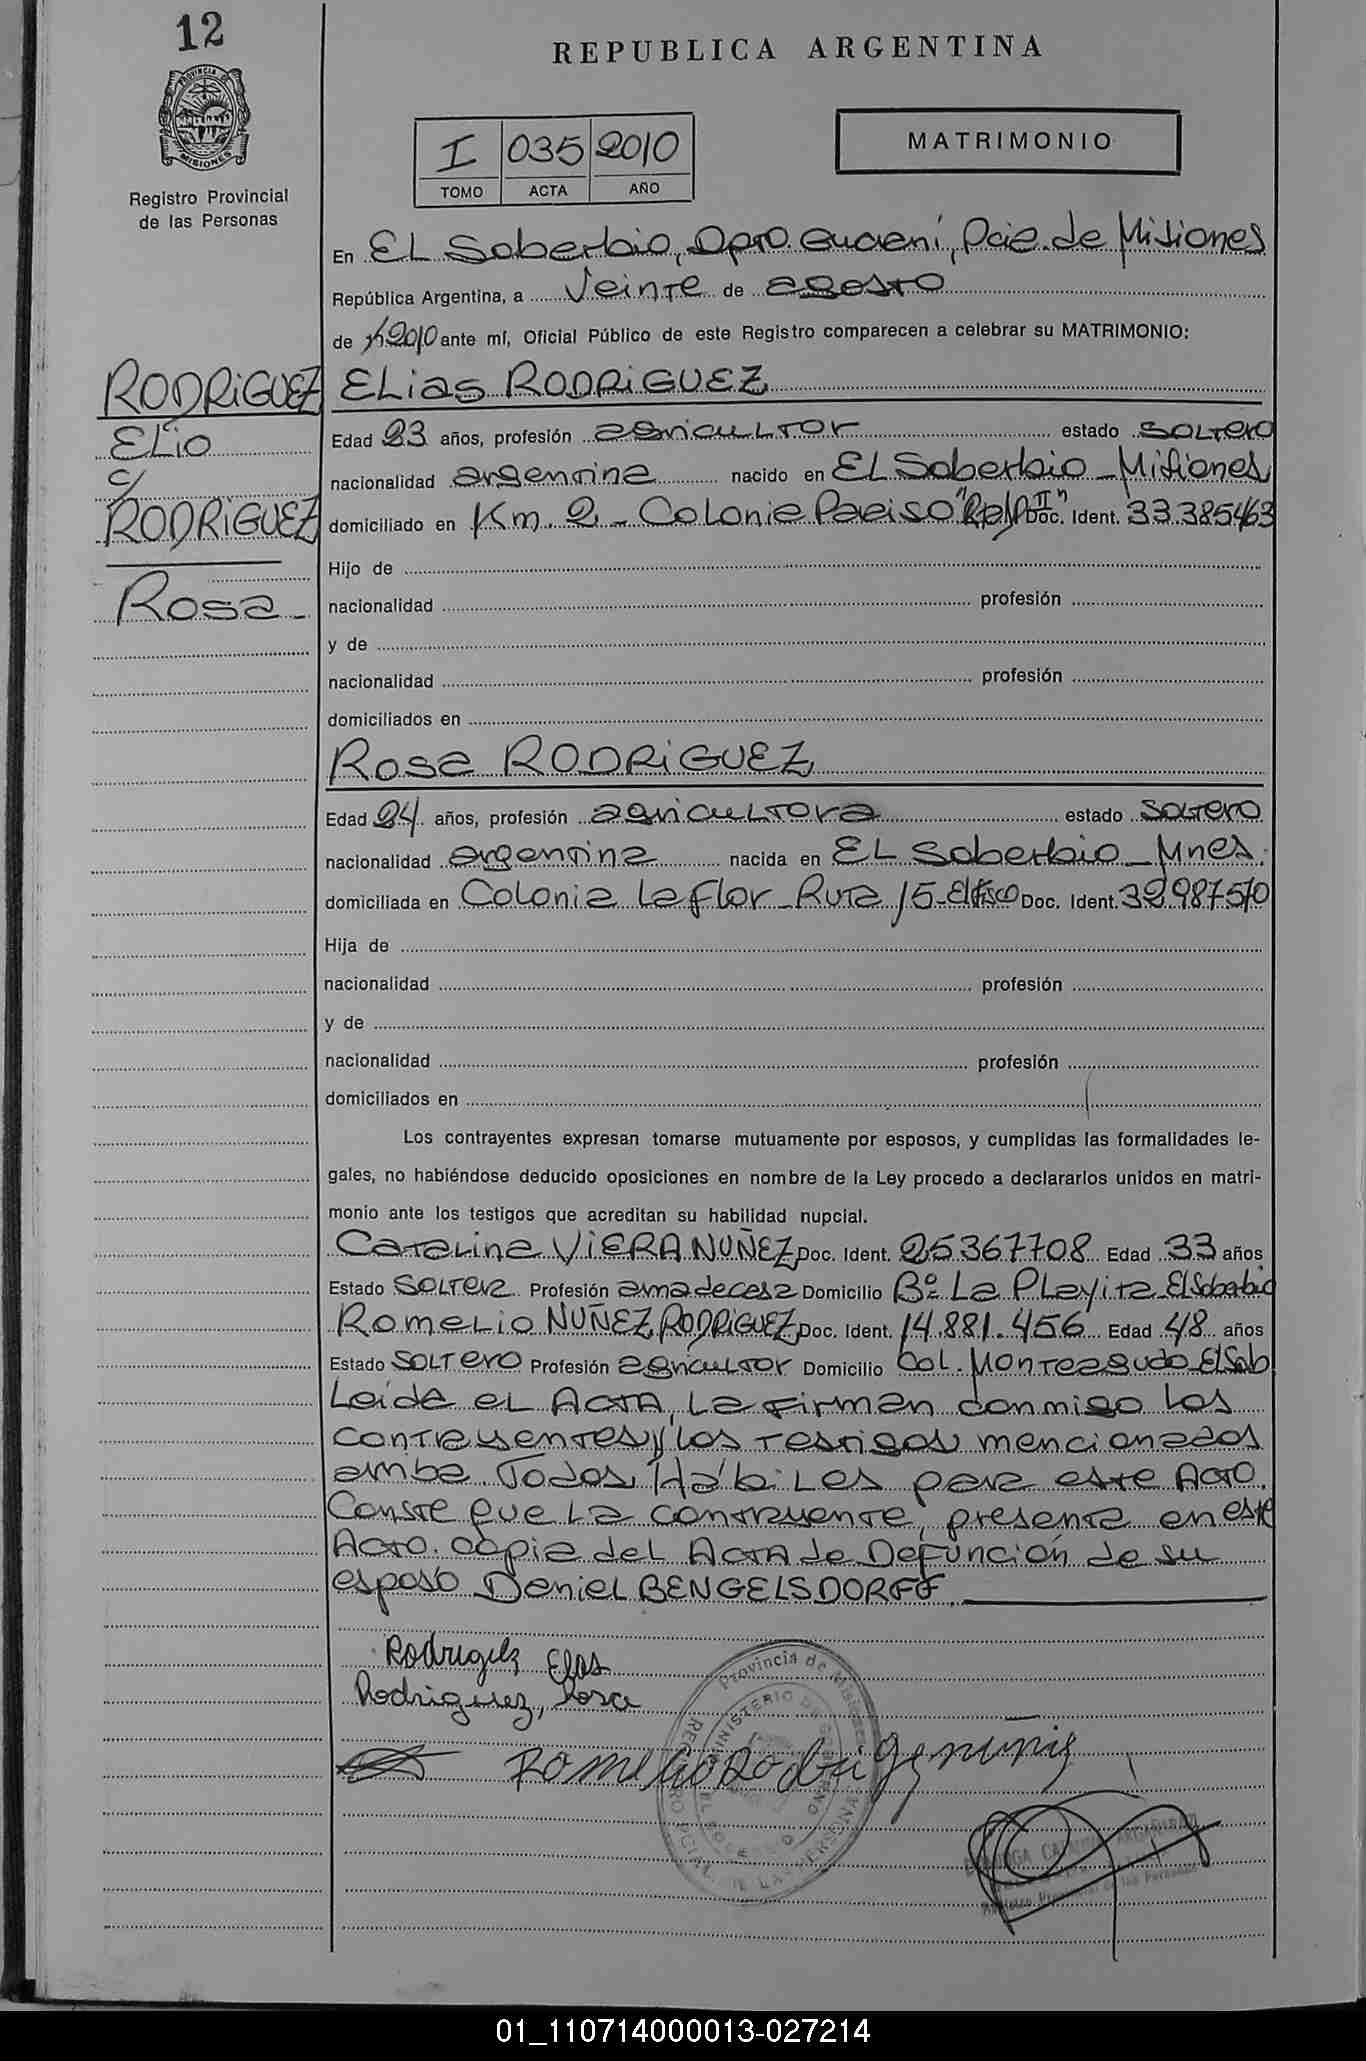 12
REPUBLICA ARGENTINA
PROVINCIA DE
MISIONES
Registro Provincial
de las Personas
I 035 2010
TOMO ACTA AÑO
MATRIMONIO
En EL Soberbio, Dpto. Guaraní, Pcia. de Misiones
República Argentina, a Veinte de agosto
de 2010 ante mí, Oficial Público de este Registro comparecen a celebrar su MATRIMONIO:
RODRIGUEZ
Elio
c/
RODRIGUEZ
Rosa
ELias RODRIGUEZ
Edad 23 años, profesión agricultor estado soltero
nacionalidad argentina nacido en EL Soberbio - Misiones
domiciliado en Km. 2 - Colonia Paraiso Doc. Ident. 33.385463
Hijo de
nacionalidad profesión
y de
nacionalidad profesión
domiciliados en
Rosa RODRIGUEZ
Edad 24 años, profesión agricultora estado soltero
nacionalidad argentina nacida en EL Soberbio - Mnes.
domiciliada en Colonia La Flor - Ruta 15 - Doc. Ident. 32.987570
Hija de
nacionalidad profesión
y de
nacionalidad profesión
domiciliados en
Los contrayentes expresan tomarse mutuamente por esposos, y cumplidas las formalidades le-
gales, no habiéndose deducido oposiciones en nombre de la Ley procedo a declararlos unidos en matri-
monio ante los testigos que acreditan su habilidad nupcial.
Catalina VIERA NUÑEZ Doc. Ident. 25367708 Edad 33 años
Estado soltera Profesión ama de casa Domicilio Bº La Playita - El Soberbio
Romelio NUÑEZ RODRIGUEZ Doc. Ident. 14.881.456 Edad 48 años
Estado soltero Profesión agricultor Domicilio Col. Monteagudo - El Sob
Leída el Acta, la firman conmigo los
contrayentes y los testigos mencionados
arriba. Todos Hábiles para este Acto.
Conste que la contrayente, presenta en este
Acto. copia del Acta de Defunción de su
esposo Daniel BENGELSDORFF.
Rodriguez Elias
Rodriguez, Rosa
Provincia de Misiones
MINISTERIO DE GOBIERNO
01_110714000013-027214